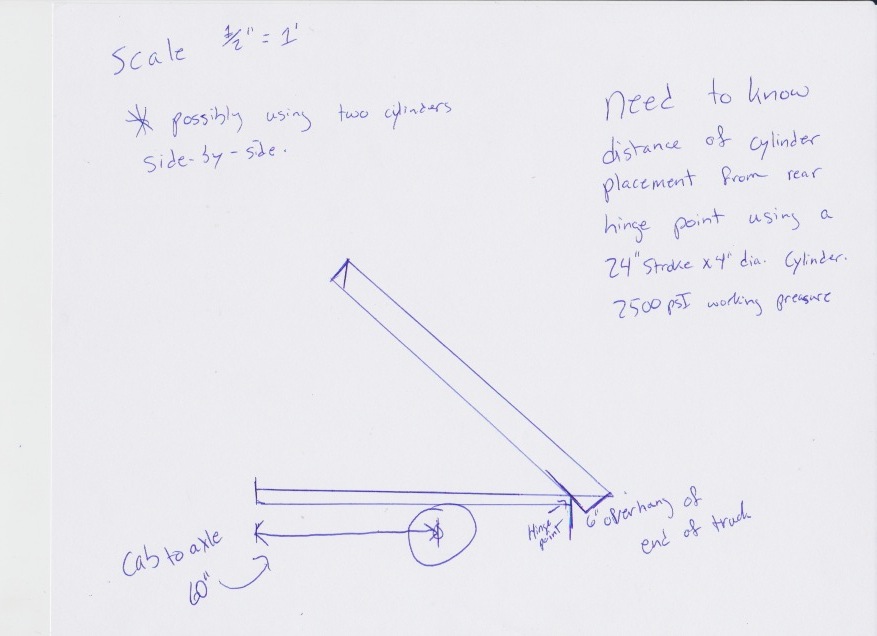 Scale 1/2" = 1'
* possibly using two cylinders
side-by-side.
Need to know
distance of cylinder
placement from rear
hinge point using a
24" stroke x 4" dia. cylinder.
2500 psI working preasure
Hinge
point
6" overhang of
end of truck
Cab to axle
60"